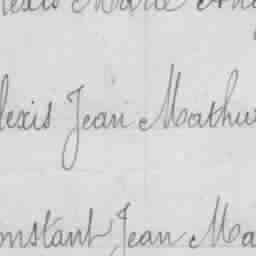 lexis Marie
lexis Jean Mathu
onstant Jean Ma